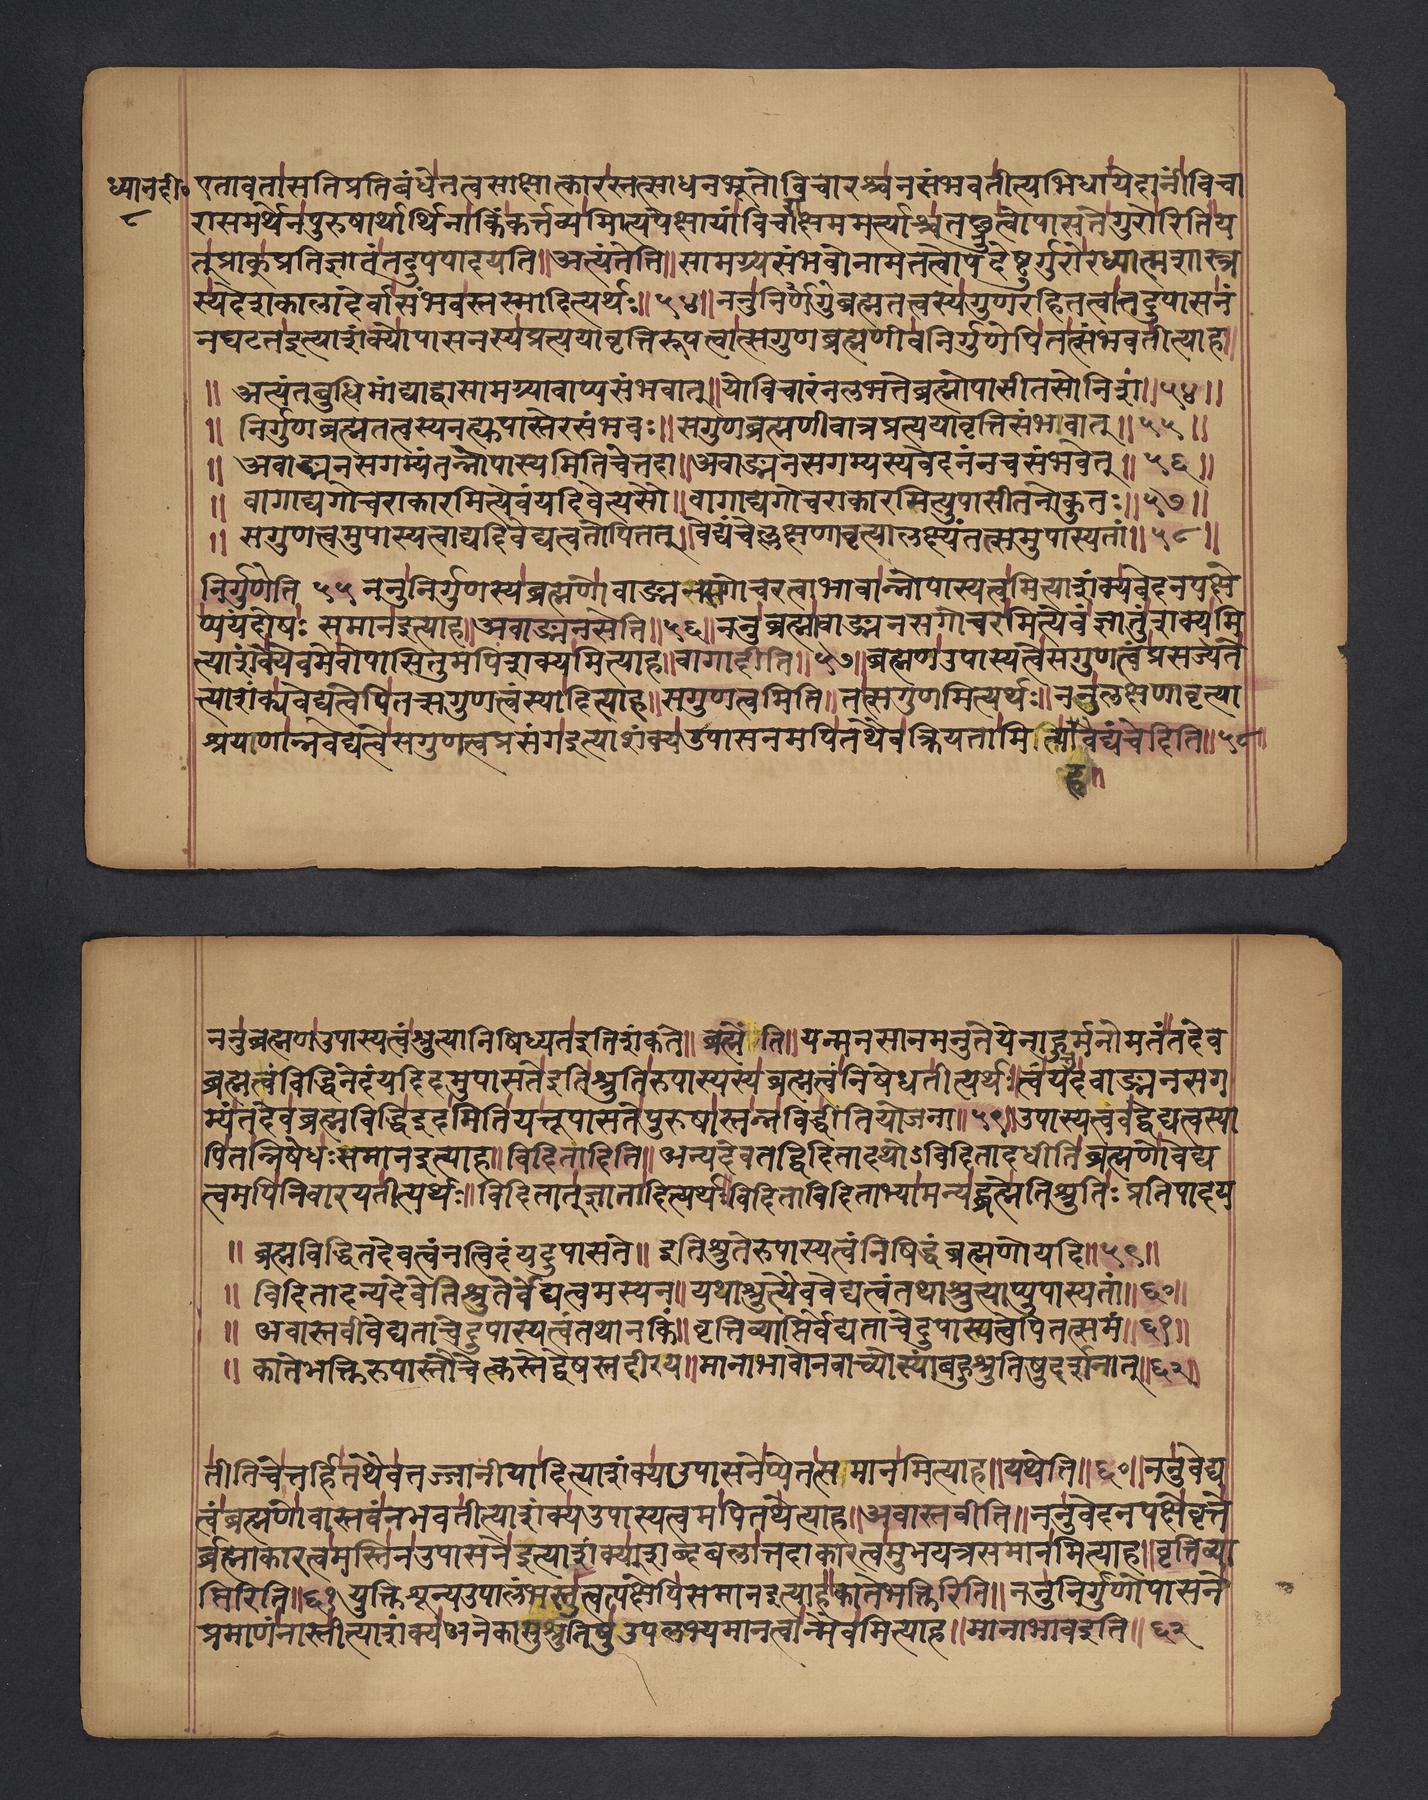 ध्यानदी॰
८
एतावतासतिप्रतिबंधेतत्वसाक्षात्कारस्तत्साधनभूतोविचारश्चनसंभवतीत्यभिधायेदानींविचा
रासमर्थेनपुरुषार्थार्थिनाकिंकर्त्तव्यमित्यपेक्षायांविचार्याक्षममर्त्याश्चतच्छ्रुत्वोपासतेगुरोरितिय
त्प्राक्प्रतिज्ञातंतदुपपादयति॥अत्यंतेति॥सामग्र्यसंभवोनामतत्वोपदेष्टुर्गुरोरध्यात्मशास्त्र
स्यदेशकालादेर्वासंभवस्तस्मादित्यर्थः॥५४॥ननुनिर्गुणब्रह्मतत्वस्यगुणरहितत्वात्तदुपासनं
नघटतइत्याशंक्योपासनस्यप्रत्ययावृत्तिरूपत्वात्सगुणब्रह्मणीवनिर्गुणेपितत्संभवतीत्याह॥
॥ अत्यंतबुद्धिमांद्याद्वासामग्र्यावाप्यसंभवात्॥योविचारंनलभतेब्रह्मोपासीतसोनिशं॥५४॥
॥ निर्गुणब्रह्मतत्वस्यनह्युपास्तेरसंभवः॥सगुणब्रह्मणीवात्रप्रत्ययावृत्तिसंभवात्॥५५॥
॥ अवाङ्मनसगम्यंतन्नोपास्यमितिचेत्तदा॥अवाङ्मनसगम्यस्यवेदनंनचसंभवेत्॥५६॥
॥ वागाद्यगोचराकारमित्येवंयदिवेत्यसौ॥वागाद्यगोचराकारमित्युपासीतनोकुतः॥५७॥
॥ सगुणत्वमुपास्यत्वाद्यदिवेद्यत्वतोपितत्॥वेद्यंचेल्लक्षणावृत्यालक्ष्यंतत्समुपास्यतां॥५८॥
निर्गुणेति ५५ ननुनिर्गुणस्यब्रह्मणोवाङ्मनसगोचरत्वाभावान्नोपास्यत्वमित्याशंक्यवेदनपक्षे
प्ययंदोषः समानइत्याह॥अवाङ्मनसेति॥५६॥ननुब्रह्मावाङ्मनसगोचरमित्येवंज्ञातुंशक्यमि
त्याशंक्यैवमेवोपासितुमपिशक्यमित्याह॥वागादीति॥५७॥ब्रह्मणउपास्यत्वेसगुणत्वंप्रसज्येते
त्याशंक्यवेद्यत्वेपितत्सगुणत्वंस्यादित्याह॥सगुणत्वमिति॥तत्सगुणमित्यर्थः॥ननुलक्षणावृत्या
श्रयाणान्नवेद्यत्वेसगुणत्वप्रसंगइत्याशंक्यउपासनमपितथैवक्रियतामित्यावेद्यंचेदिति॥५८॥
ह॥
ननुब्रह्मणउपास्यत्वंश्रुत्यानिषिध्यतइतिशंकते॥ब्रह्मेति॥यन्मनसानमनुतेयेनाहुर्मनोमतंतदेव
ब्रह्मत्वंविद्धिनेदंयदिदमुपासतेइतिश्रुतिरुपास्यस्यब्रह्मत्वंनिषेधतीत्यर्थः॥त्वंयदैवाङ्मनसग
म्यंतदेवब्रह्मविद्धिइदमितियत्तूपासतेपुरुषास्तन्नविद्धीतियोजना॥५९॥उपास्यत्ववद्वेद्यत्वस्या
पितन्निषेधःसमानइत्याह॥विदितादिति॥अन्यदेवतद्विदितादथोऽविदितादधीतिब्रह्मणोवेद्य
त्वमपिनिवारयतीत्यर्थः॥विदितात्ज्ञातादित्यर्थः॥विदिताविदिताभ्यामन्यद्ब्रह्मेतिश्रुतिः प्रतिपादय
॥ ब्रह्मविद्धितदेवत्वंनत्विदंयदुपासते॥ इतिश्रुतेरुपास्यत्वंनिषिद्धंब्रह्मणोयदि॥५९॥
॥ विदितादन्यदेवेतिश्रुतेर्वेद्यत्वमस्यन॥यथाश्रुत्यैववेद्यत्वंतथाश्रुत्याप्युपास्यतां॥६०॥
॥ अवास्तवीवेद्यताचेदुपास्यत्वंतथानकिं॥वृत्तिव्याप्तिर्वेद्यताचेदुपास्यत्वेपितत्समं॥६१॥
॥ कातेभक्तिरुपास्तौचेत्कस्तेद्वेषस्तदीरय॥मानाभावोनवाच्योस्यांबहुश्रुतिषुदर्शनात्॥६२॥
तीतिचेत्तर्हितथैवतज्जानीयादित्याशंक्यउपासनेप्येतत्समानमित्याह॥यथेति॥६०॥ननुवेद्य
त्वंब्रह्मणोवास्तवंनभवतीत्याशंक्यउपास्यत्वमपितथेत्याह॥अवास्तवीति॥ननुवेदनपक्षेवृत्ते
र्ब्रह्माकारत्वमस्तिनउपासनेइत्याशंक्यशब्दबलात्तदाकारत्वमुभयत्रसमानमित्याह॥वृत्तिव्या
प्तिरिति॥६१॥युक्तिशून्यउपालंभस्तुत्वत्पक्षेपिसमानइत्याह॥कातेभक्तिरिति॥ननुनिर्गुणोपासने
प्रमाणंनास्तीत्याशंक्यअनेकासुश्रुतिषुउपलभ्यमानत्वान्मैवमित्याह॥मानाभावइति॥६२